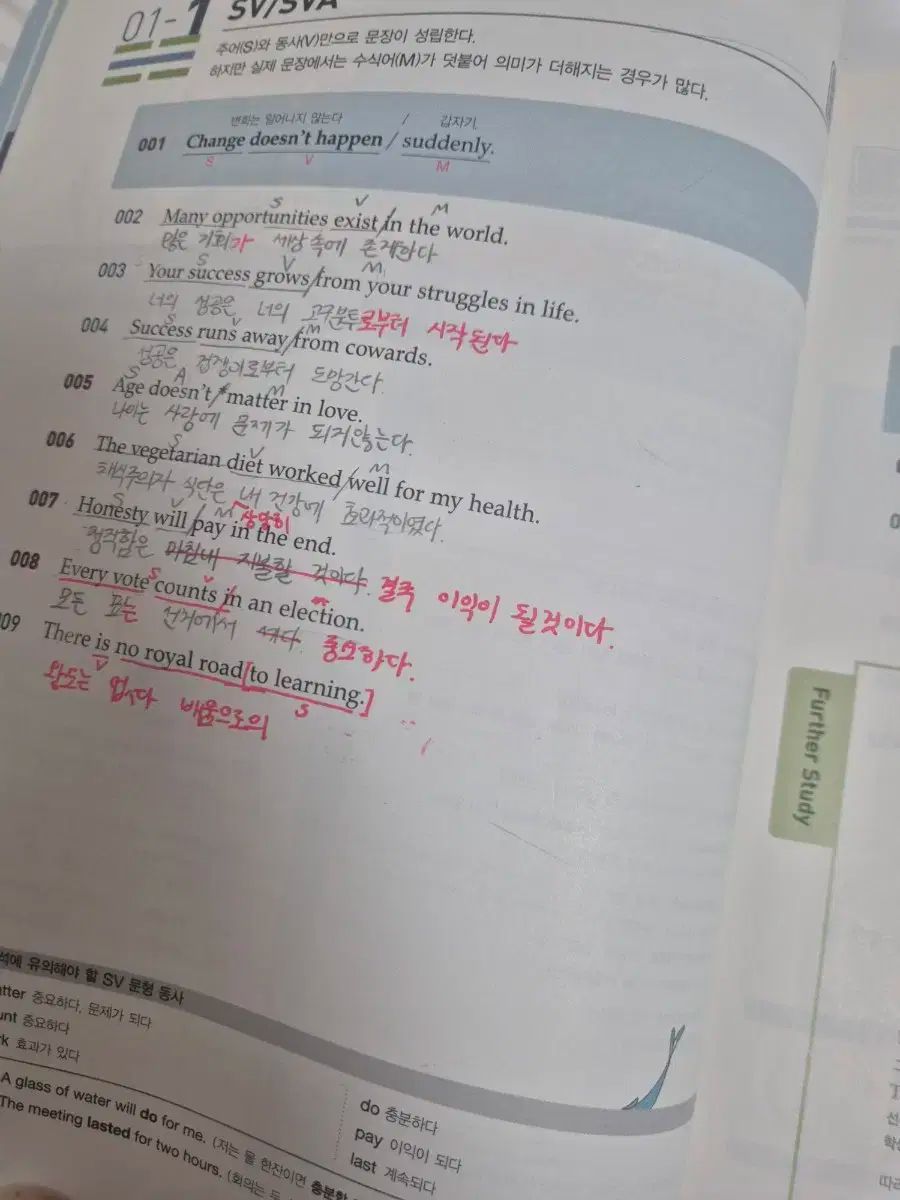 01-1 SV/SVA
주어(S)와 동사(V)만으로 문장이 성립한다.
하지만 실제 문장에서는 수식어(M)가 덧붙어 의미가 더해지는 경우가 많다.
변화는 일어나지 않는다 / 갑자기.
001 Change doesn't happen / suddenly.
S V M
S V M
002 Many opportunities exist / in the world.
많은 기회가 세상 속에 존재한다
S V M
003 Your success grows / from your struggles in life.
너의 성공은 너의 고군분투로부터 시작된다
S V M
004 Success runs away / from cowards.
성공은 겁쟁이로부터 도망간다.
S A M
005 Age doesn't matter in love.
나이는 사랑에 문제가 되지않는다.
S V M
006 The vegetarian diet worked / well for my health.
채식주의자 식단은 내 건강에 효과적이었다.
상당히
S V M
007 Honesty will / pay in the end.
정직함은 마침내 지불할 것이다. 결국 이익이 될것이다.
S V
008 Every vote counts / in an election.
모든 표는 선거에서 중요하다.
09 There is no royal road [to learning.]
V S
왕도는 없다 배움으로의
석에 유의해야 할 SV 문형 동사
atter 중요하다, 문제가 되다
unt 중요하다
rk 효과가 있다
do 충분하다
pay 이익이 되다
last 계속되다
A glass of water will do for me. (저는 물 한잔이면 충분
The meeting lasted for two hours. (회의는 두
Further Study